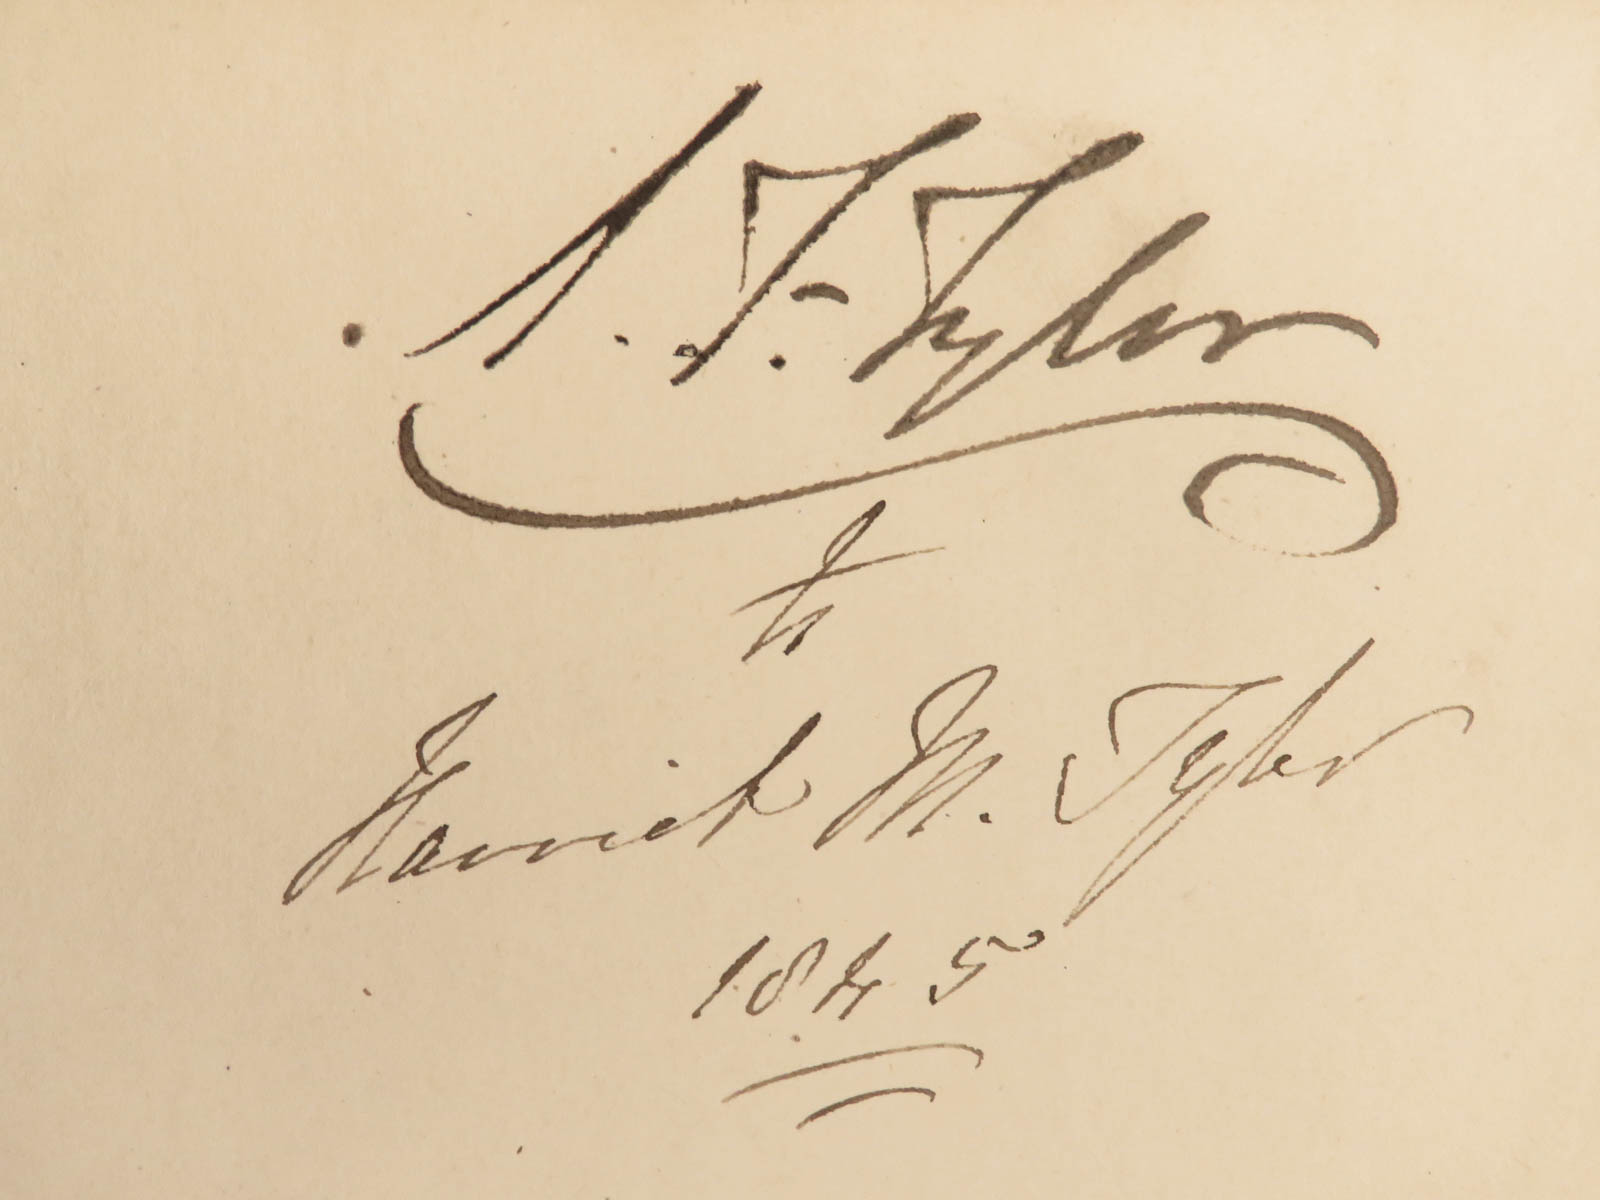 A. F. Tyler
to
Harriet M. Tyler
1845